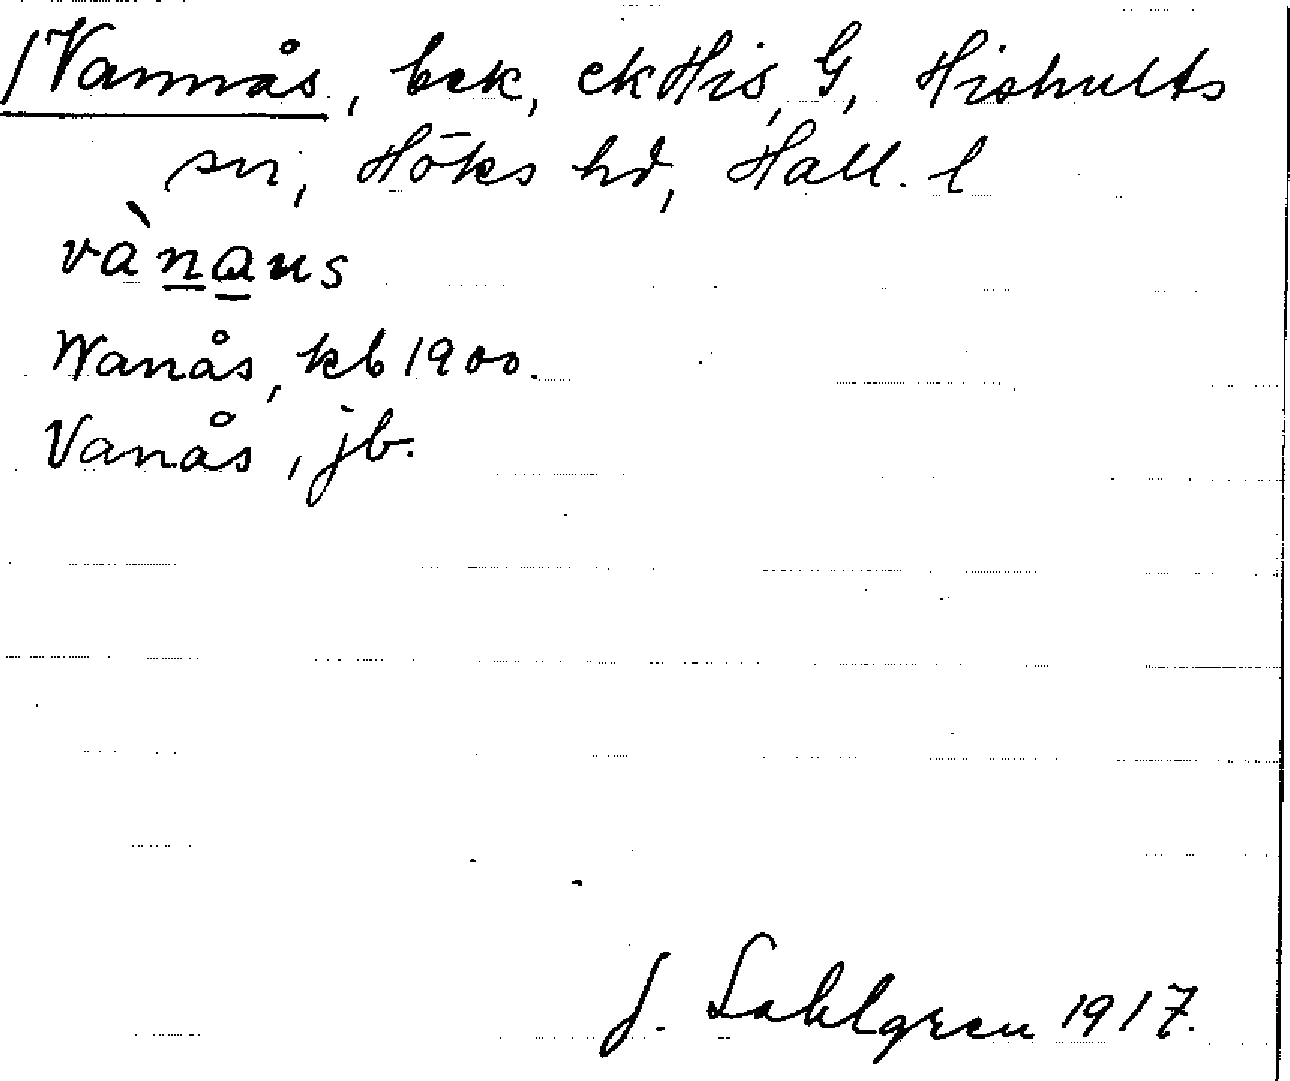 /Vannås, bek, ek His, G, Hishults
sn, Höks hd, Hall. l
vànaus
Wanås, kb 1900.
Vanås, jb.
J. Sahlgren 1917.